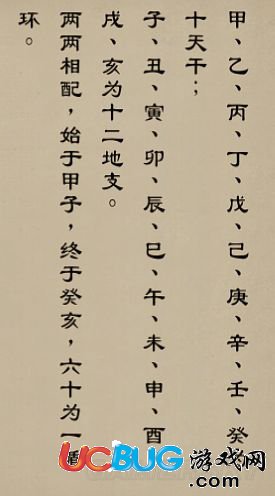 甲、乙、丙、丁、戊、己、庚、辛、壬、癸
十天干；
子、丑、寅、卯、辰、巳、午、未、申、酉
戌、亥为十二地支。
两两相配，始于甲子，终于癸亥，六十为一循
环。
UCBUG游戏网
.com